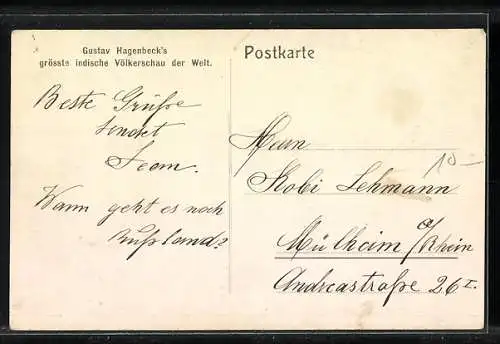 Gustav Hagenbeck's
grösste indische Völkerschau der Welt.
Beste Grüße
sendet
Wann geht es nach
Rußland?
Postkarte
Herrn
Kobi Lehmann
Mülheim a/Rhein
Andreastraße 26 I.
10 –